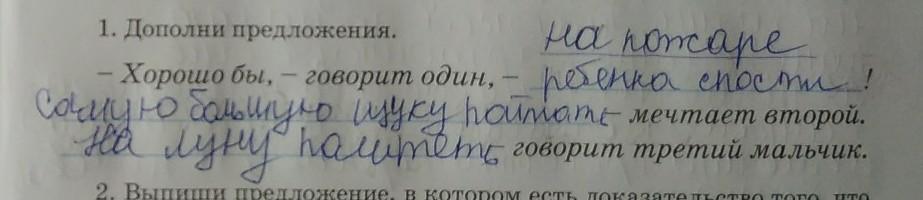 1. Дополни предложения.
на пожаре
– Хорошо бы, – говорит один, – ребенка спости !
Самую большую щуку поймать – мечтает второй.
На луну полететь говорит третий мальчик.
2. Выпиши предложение, в котором есть доказательство того, что